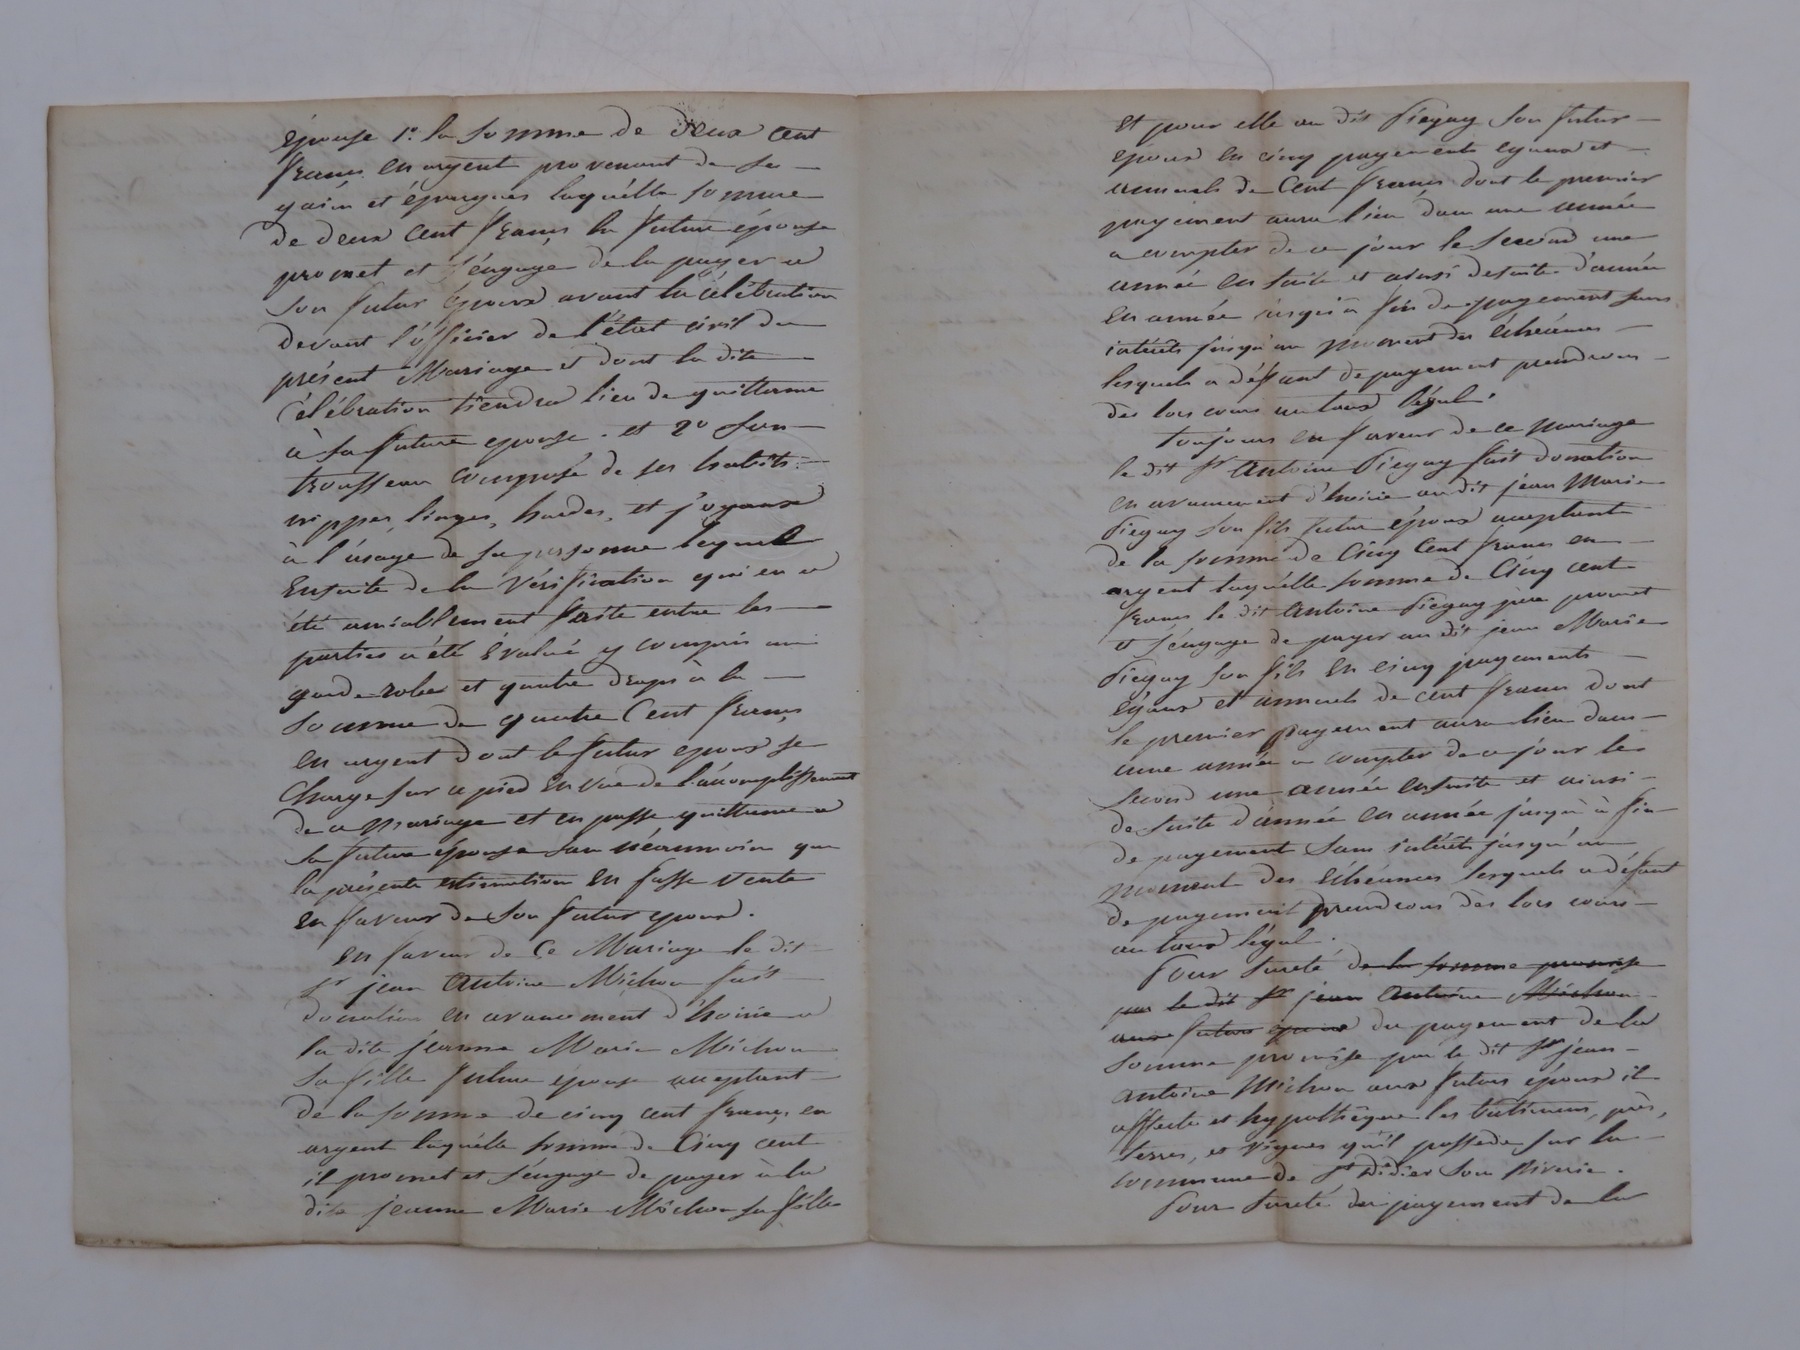 épouse 1º. la somme de deux cent
francs en argent provenant de se
gain et épargnes laquélle somme
de deux cent francs la future épouse
promet et s'éngage de la payer a
son futur époux avant la célébration
devant l'officier de l'état civil du
présent Mariage et dont la dite
célébration tiendra lieu de quittance
à sa future epouse. et 2º son
trousseau composé de ses habits
nippes, linges, hardes, et joyaux
à l'usage de sa personne lequel
Ensuite de la vérification qui en a
été amiablement faite entre les
parties a été évalué y compris une
garde-robe et quatre draps à la
somme de quatre Cent francs
en argent dont le futur epoux se
charge sur ce pied En vue de l'accomplissement
de ce Mariage et en passe quittance a
sa future épouse sans néanmoins que
la présente estimation en fasse vente
en faveur de son futur epoux.
En faveur de Ce Mariage le dit
sr jean Antoine Michon fait
donation en avancement d'hoirie a
la dite jeanne Marie Michon
sa fille future épouse acceptant
de la somme de cinq cent francs en
argent laquélle somme de Cinq cent
il promet et s'engage de payer à la
dite jeanne Marie Michon sa fille
et pour elle au dit Piegay son futur
epoux en cinq payements egaux et
annuels de Cent francs dont le premier
payement aura lieu dans une année
a compter de ce jour le second une
année en suite et ainsi desuite d'année
en année jusqu'à fin de payement sans
intérêts jusqu'au moment des échéances
lesquels a défaut de payement prendrons
dès lors cours au taux légal.
Toujours en faveur de ce Mariage
le dit sr Antoine Piegay fait donation
en avancement d'hoirie au dit jean Marie
Piegay son fils futur époux acceptant
de la somme de Cinq Cent francs en
argent laquélle somme de Cinq cent
francs le dit Antoine Piegay père promet
et s'éngage de payer au dit jean Marie
Piegay son fils en cinq payements
égaux et annuels de cent francs dont
le premier payement aura lieu dans
une année a compter de ce jour le
second une année ensuite et ainsi
de suite d'année en année jusqu'à fin
de payement sans intérêts jusqu'au
moment des échéances lesquels a défaut
de payement prendrons dès lors cours
au taux légal.
Pour sureté de la somme promise
par le dit sr jean Antoine Michon
aux futurs époux du payement de la
somme promise par le dit sr jean
Antoine Michon aux futurs époux il
affecte et hypothèque les bâtimens, près,
terres, et vignes qu'il possede sur la
commune de St Didier sous Riverie.
Pour sureté du payement de la